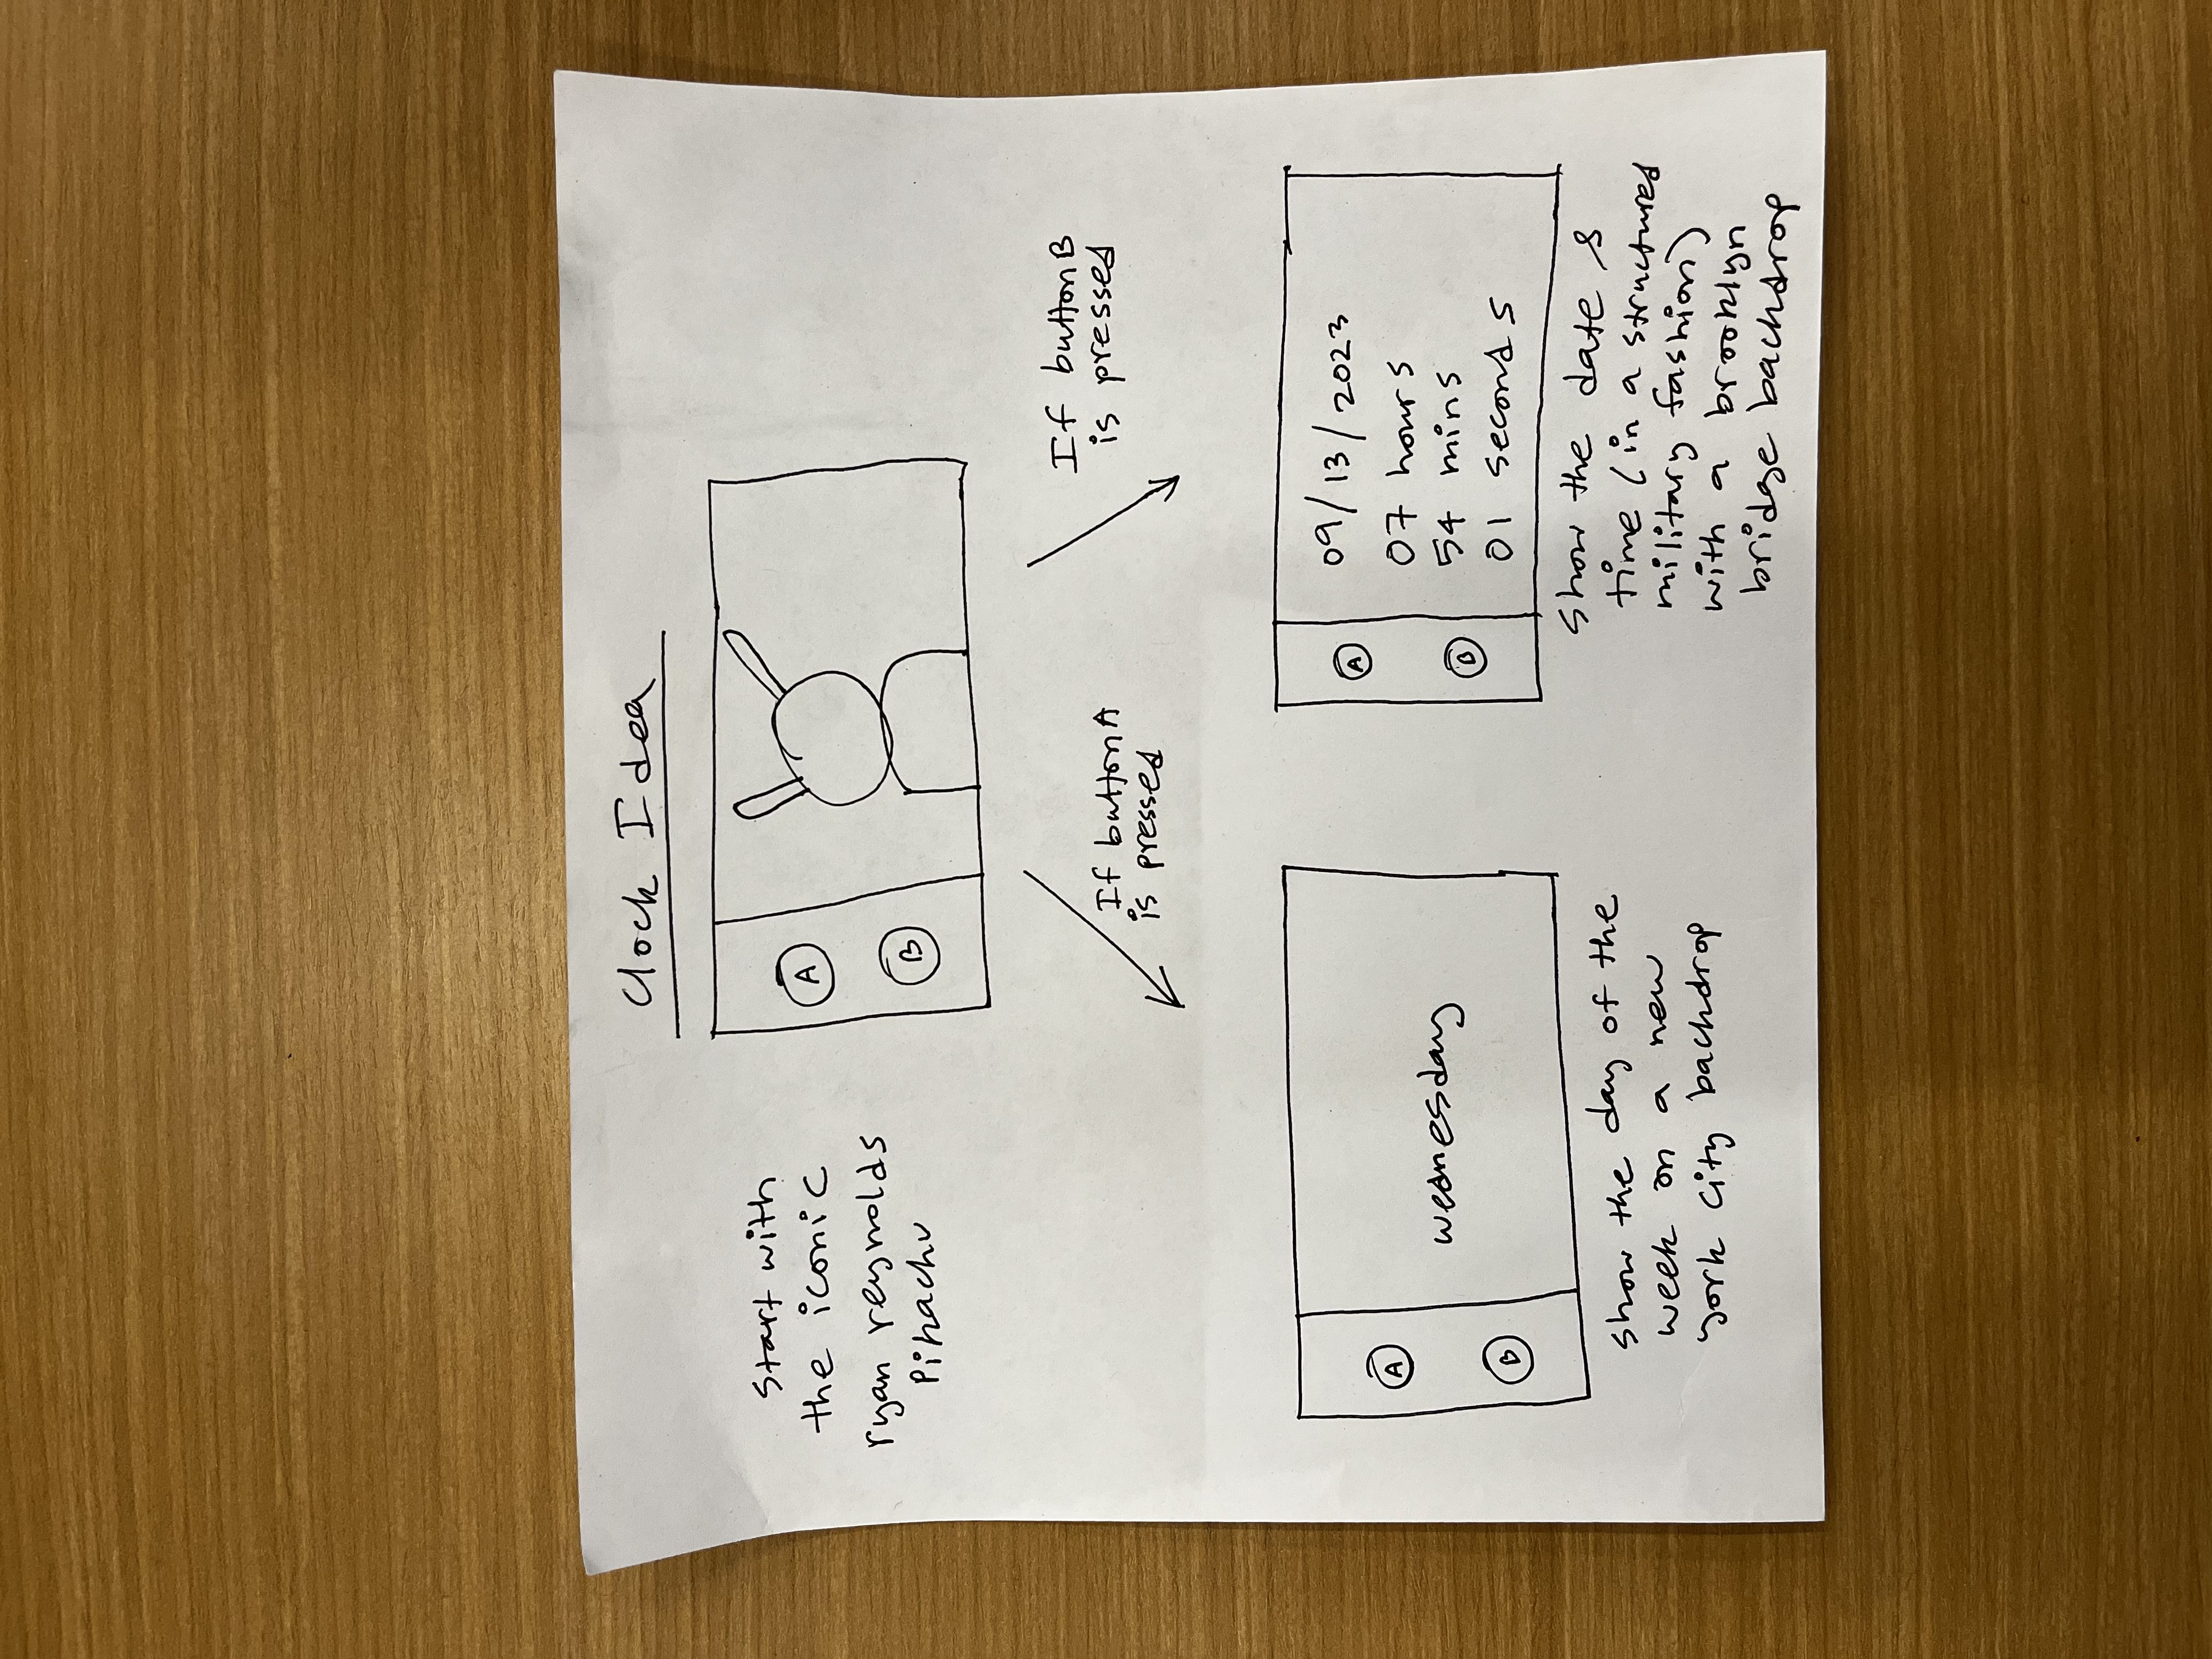 Clock Idea
start with
the iconic
ryan reynolds
Pikachu
A
B
If button A
is pressed
If button B
is pressed
A
B
wednesday
show the day of the
week on a new
york city backdrop
A
B
09/13/2023
07 hours
54 mins
01 seconds
show the date &
time (in a structured
military fashion)
with a brooklyn
bridge backdrop